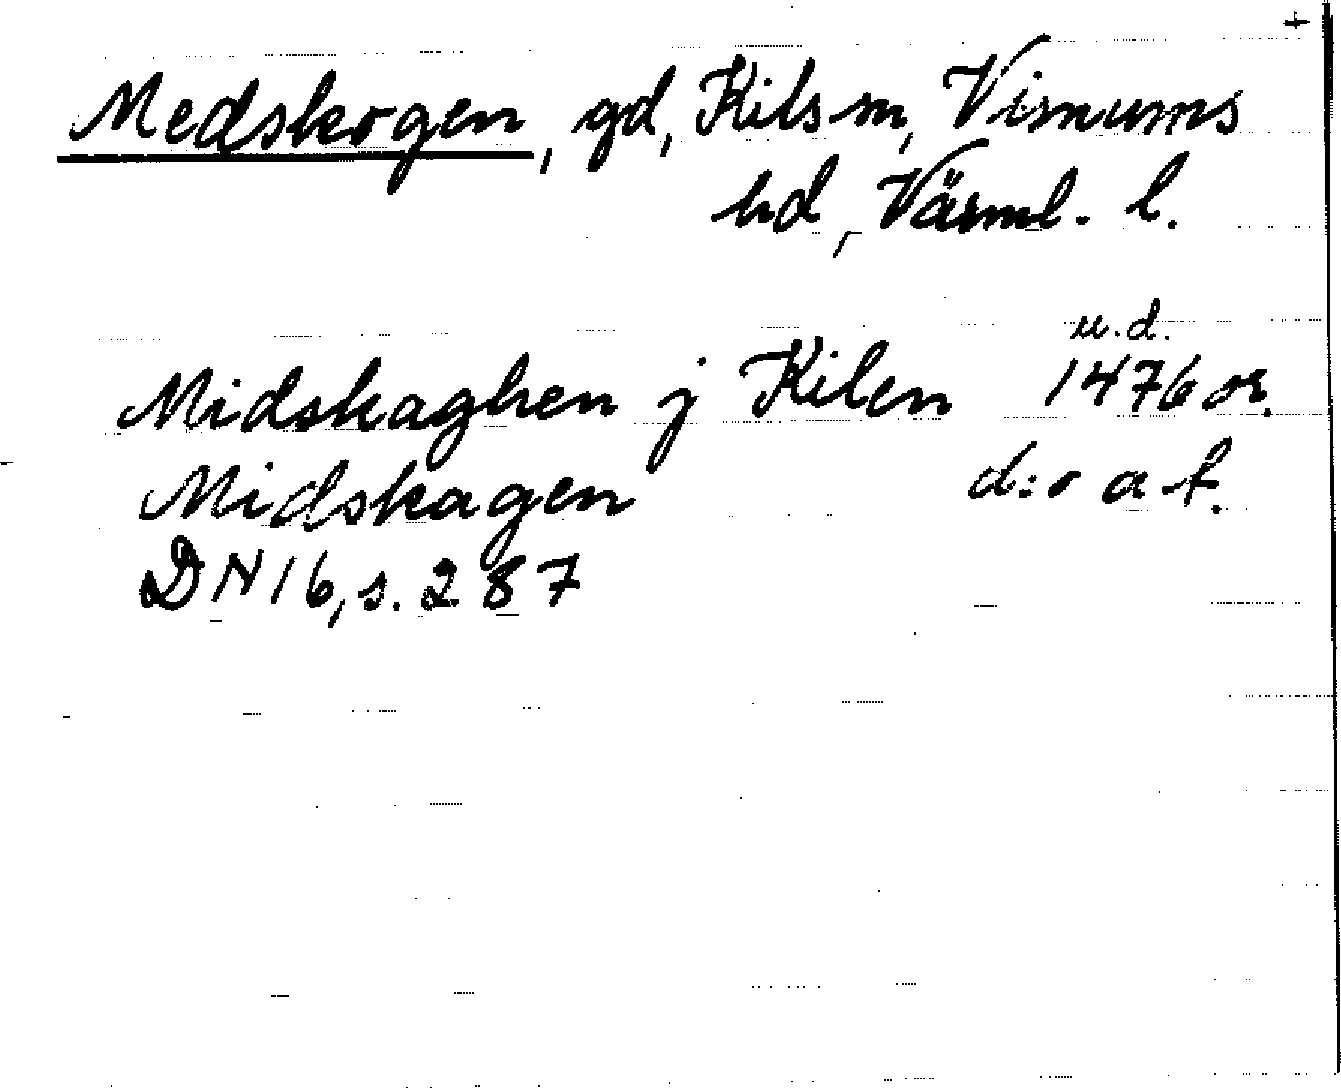 +
Medskogen, gd, Kils sn, Visnums
hd, Värml. l.
u.d.
Midskaghen j Kilen 1476 or.
Midskagen d:o a f.
DN 16, s. 287